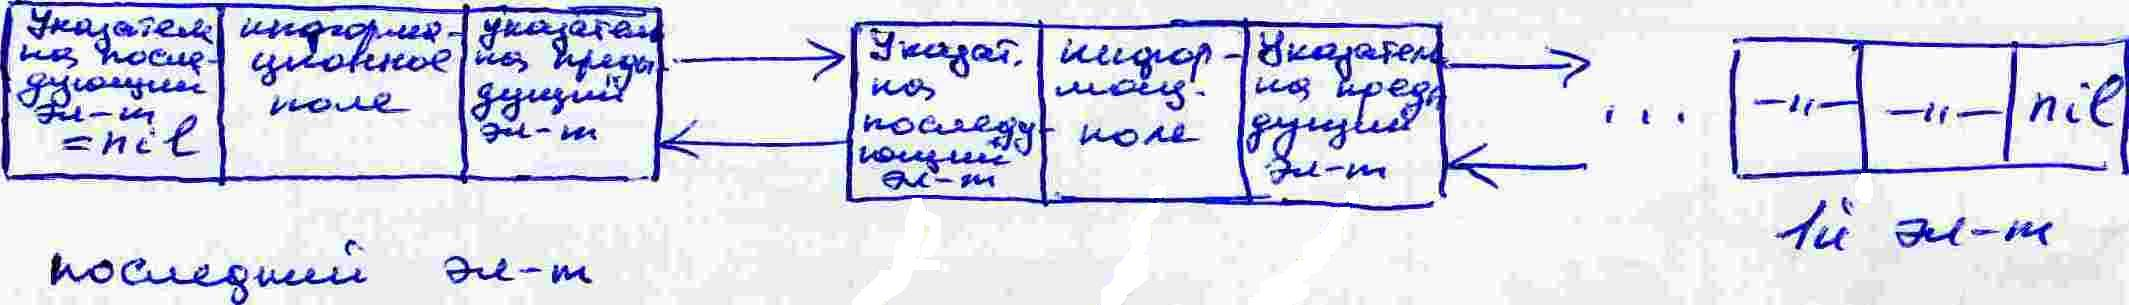 Указатель
на после-
дующий
эл-т
=nil
информа-
ционное
поле
указатель
на преды-
дущий
эл-т
Указат.
на
последу-
ющий
эл-т
информ-
мац.
поле
Указатель
на преды
дущий
эл-т
...
–"–
–"–
nil
последний эл-т
1й эл-т